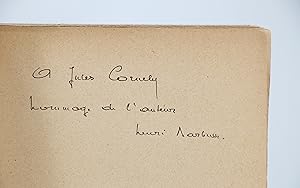 A Jules Cornely
hommage de l'auteur
Henri Barbusse.